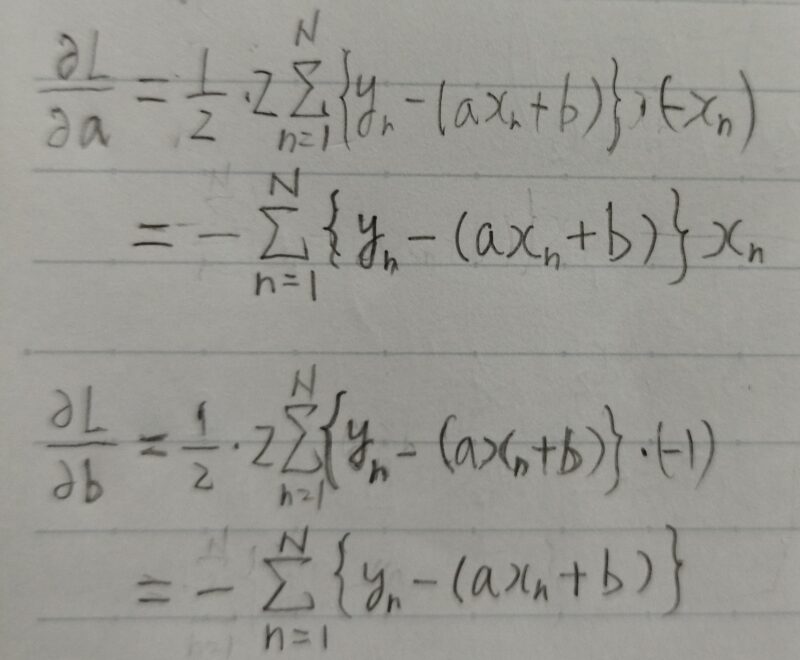 ∂L/∂a = 1/2 · 2 ∑_{n=1}^{N} {y_n − (ax_n + b)} · (−x_n)
= − ∑_{n=1}^{N} {y_n − (ax_n + b)} x_n
∂L/∂b = 1/2 · 2 ∑_{n=1}^{N} {y_n − (ax_n + b)} · (−1)
= − ∑_{n=1}^{N} {y_n − (ax_n + b)}